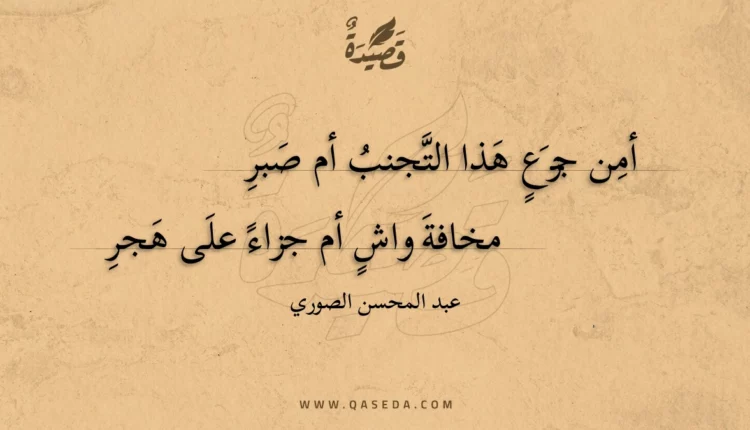 قَصِيْدَةٌ
أمِن جوَعٍ هَذا التَّجنبُ أم صَبرِ
مخافةَ واشٍ أم جزاءً علَى هَجرِ
عبد المحسن الصوري
WWW.QASEDA.COM